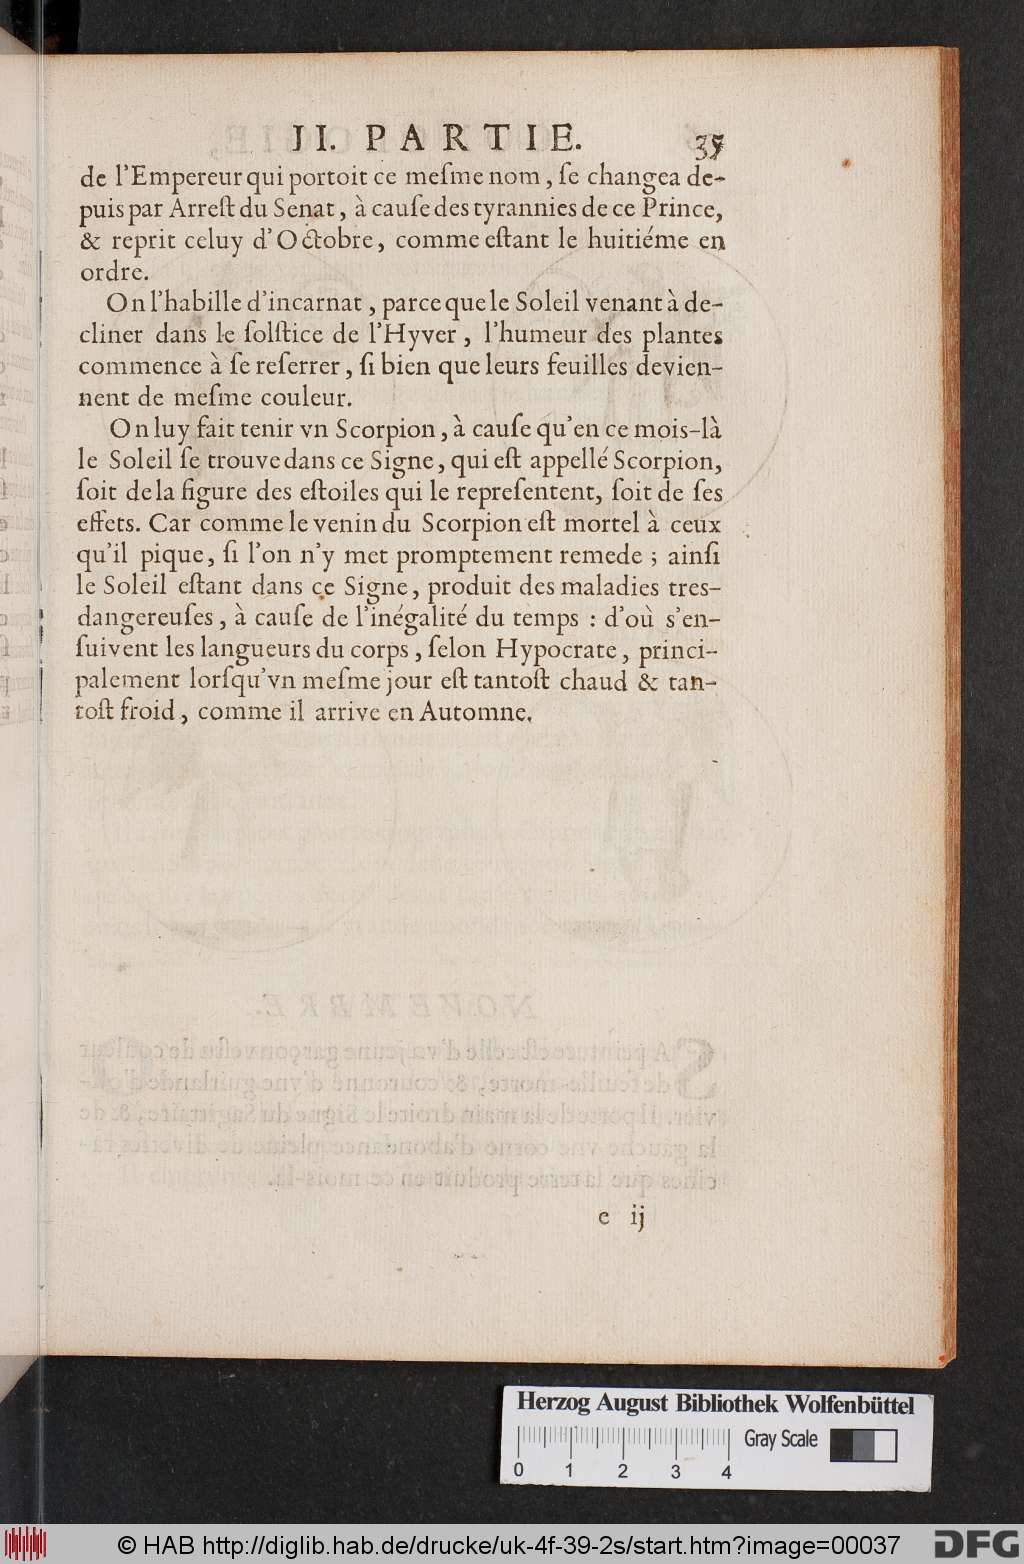 II. PARTIE. 35
de l'Empereur qui portoit ce meſme nom, ſe changea de-
puis par Arreſt du Senat, à cauſe des tyrannies de ce Prince,
& reprit celuy d'Octobre, comme eſtant le huitiéme en
ordre.
On l'habille d'incarnat, parce que le Soleil venant à de-
cliner dans le ſolſtice de l'Hyver, l'humeur des plantes
commence à ſe reſerrer, ſi bien que leurs feuilles devien-
nent de meſme couleur.
On luy fait tenir vn Scorpion, à cauſe qu'en ce mois-là
le Soleil ſe trouve dans ce Signe, qui eſt appellé Scorpion,
ſoit de la figure des eſtoiles qui le repreſentent, ſoit de ſes
effets. Car comme le venin du Scorpion eſt mortel à ceux
qu'il pique, ſi l'on n'y met promptement remede ; ainſi
le Soleil eſtant dans ce Signe, produit des maladies tres-
dangereuſes, à cauſe de l'inégalité du temps : d'où s'en-
ſuivent les langueurs du corps, ſelon Hypocrate, princi-
palement lorſqu'vn meſme jour eſt tantoſt chaud & tan-
toſt froid, comme il arrive en Automne.
e ij
Herzog August Bibliothek Wolfenbüttel
Gray Scale
0 1 2 3 4
© HAB http://diglib.hab.de/drucke/uk-4f-39-2s/start.htm?image=00037
DFG